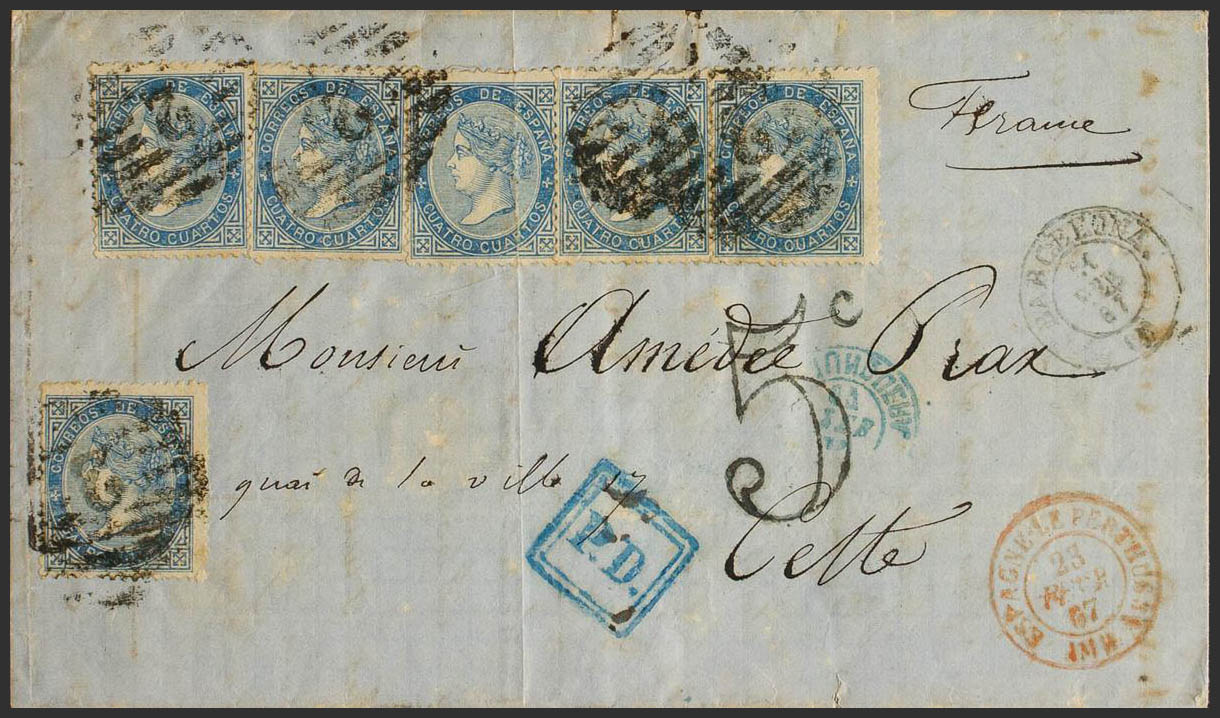 CORREOS DE ESPAÑA CORREOS DE ESPAÑA CORREOS DE ESPAÑA CORREOS DE ESPAÑA CORREOS DE ESPAÑA
2
CUATRO CUARTOS CUATRO CUARTOS CUATRO CUARTOS CUATRO CUARTOS CUATRO CUARTOS
France
BARCELONA.
67
5c
Monsieur Amédée Prax
CORREOS DE ESPAÑA
quai de la ville 17
P.D.
Cette
ESPAGNE·LE PERTHUS
23
FEVR
67